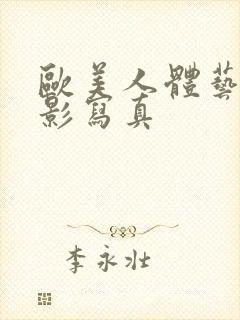 歐美人體藝
影寫真
李永壯